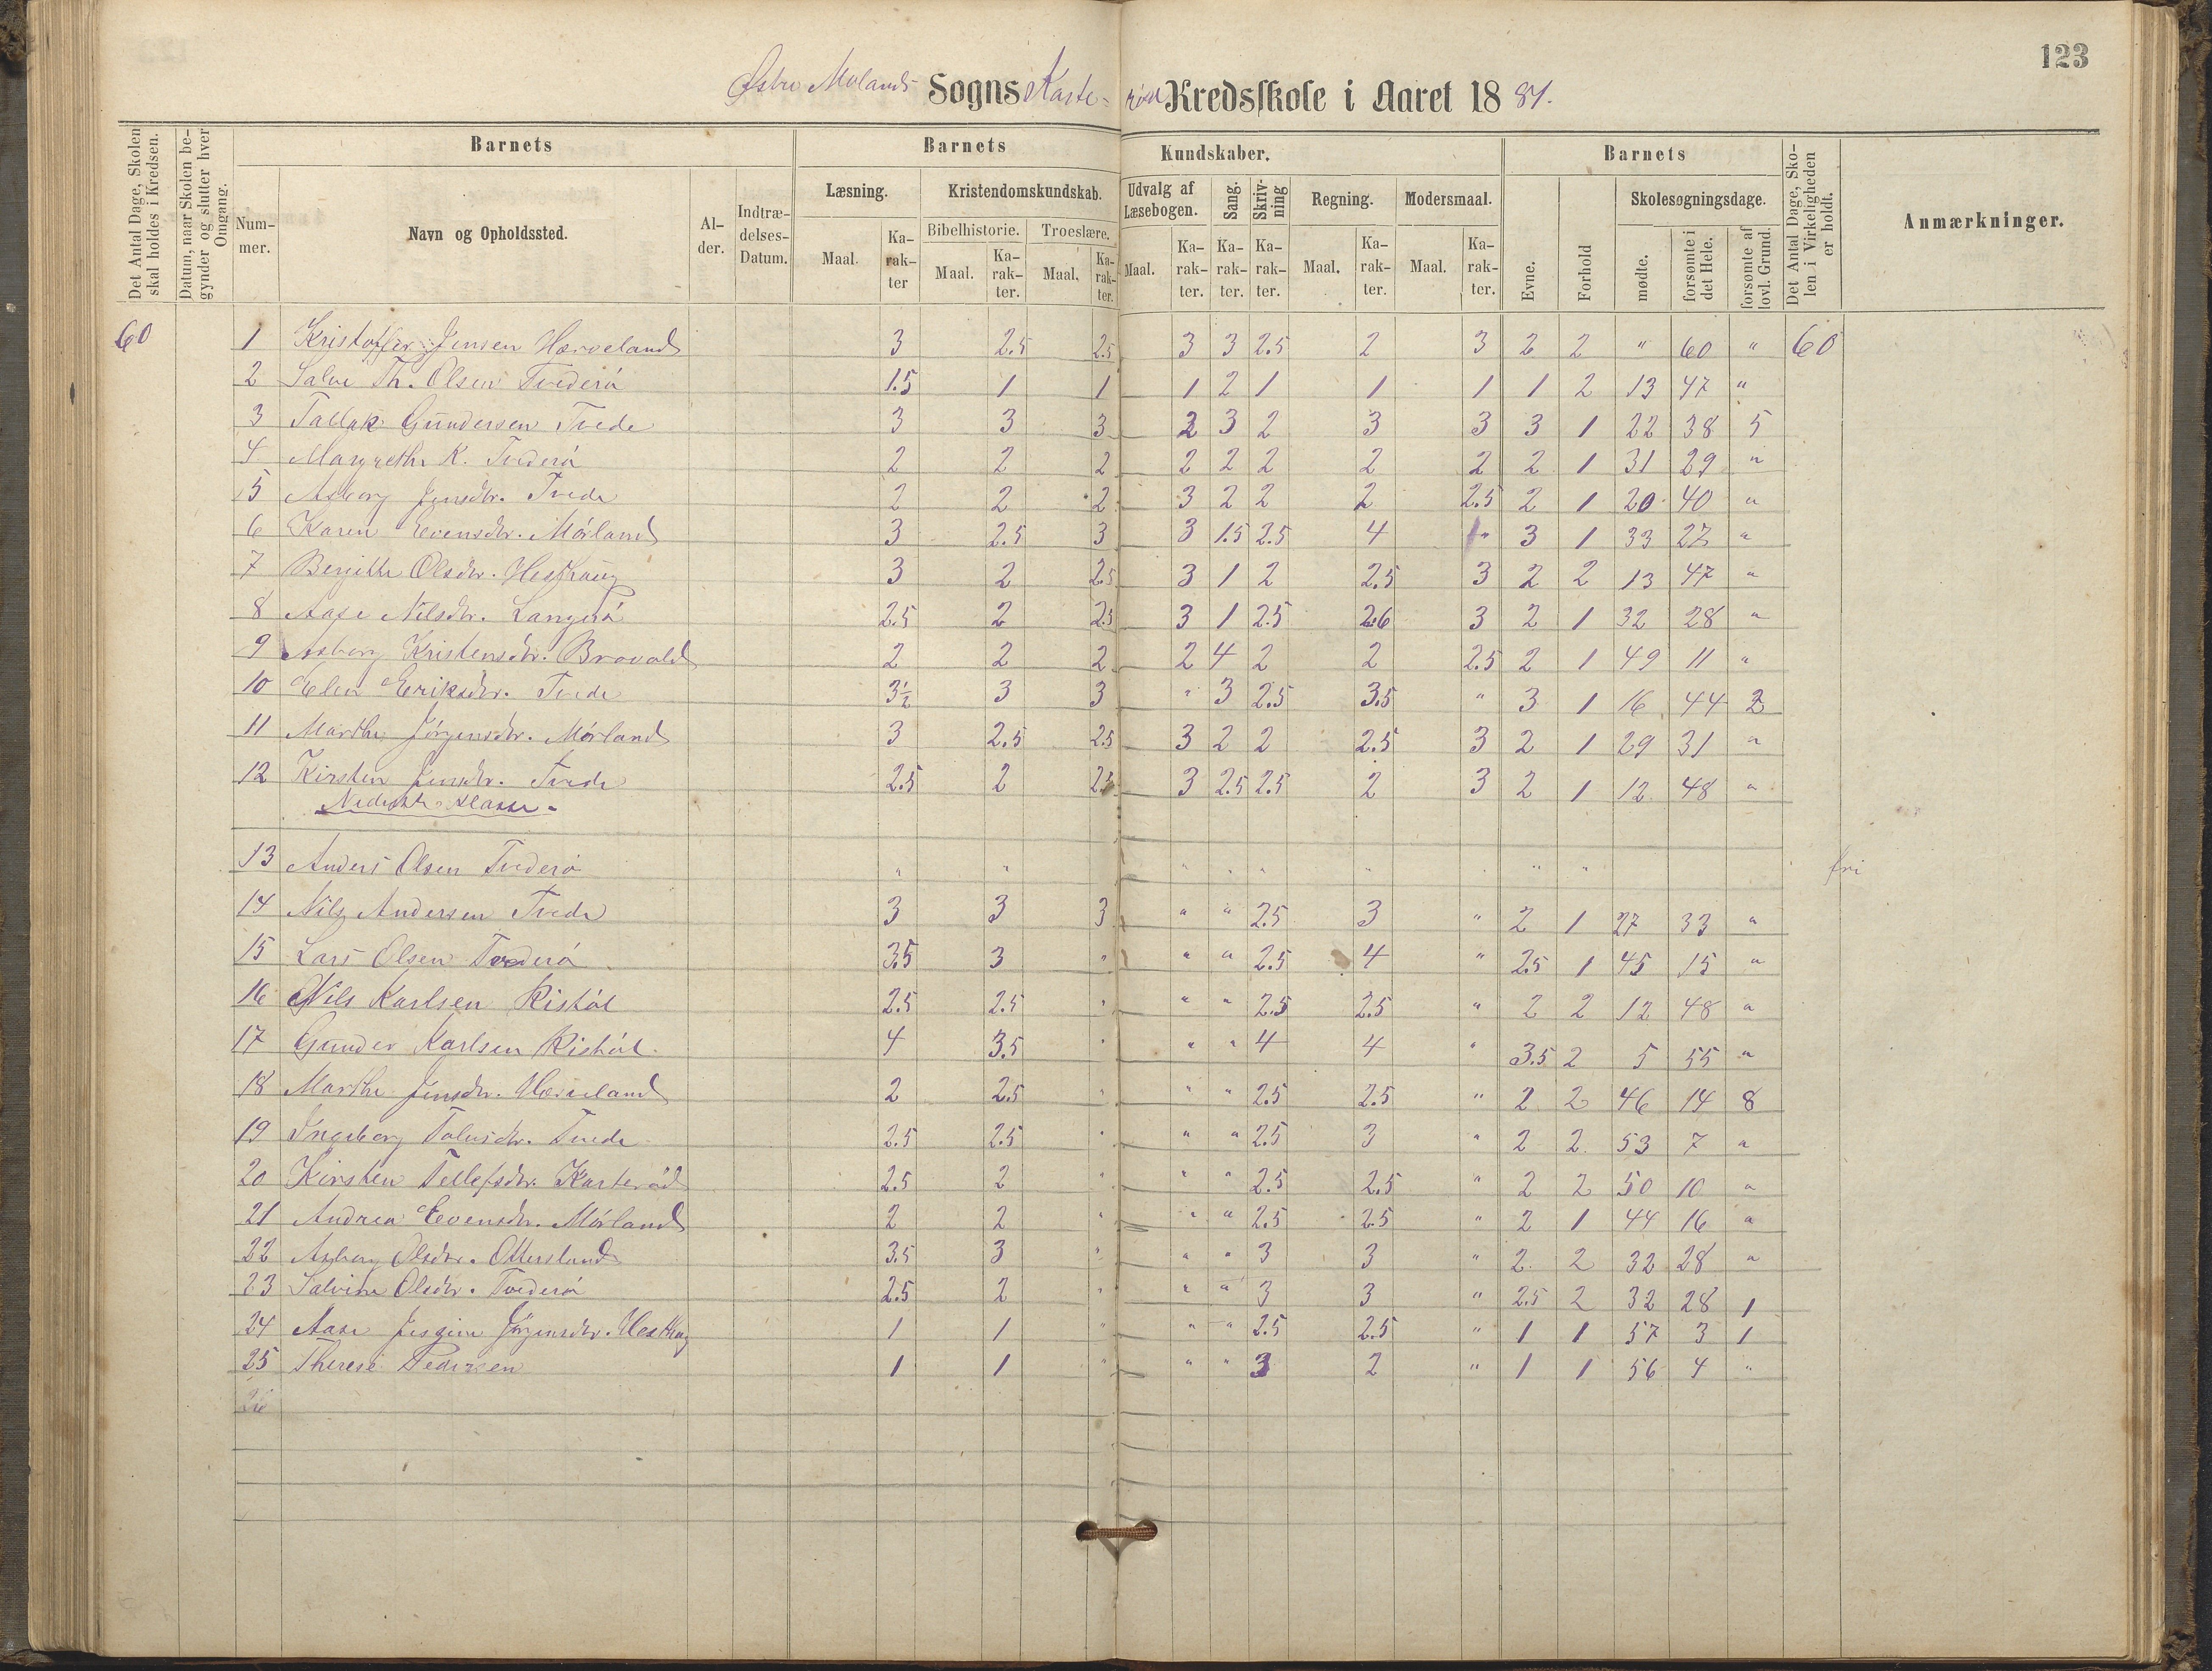 123
Østre Molands Sogns Karte- rød Kredsskole i Aaret 18 81.
Det Antal Dage, Skolen skal holdes i Kredsen.
Datum, naar Skolen begynder og slutter hver Omgang.
Barnets
Num-mer.
Navn og Opholdssted.
Al-der.
Indtræ-delses-Datum.
Barnets Kundskaber.
Læsning.
Maal. Ka-rak-ter
Kristendomskundskab.
Bibelhistorie. Troeslære.
Maal. Ka-rak-ter. Maal. Ka-rak-ter.
Udvalg af Læsebogen.
Maal. Ka-rak-ter.
Sang. Ka-rak-ter.
Skriv-ning Ka-rak-ter.
Regning.
Maal. Ka-rak-ter.
Modersmaal.
Maal. Ka-rak-ter.
Barnets
Evne. Forhold
Skolesøgningsdage.
mødte. forsømte i det Hele. forsømte af lovl. Grund.
Det Antal Dage, Sko-len i Virkeligheden er holdt.
Anmærkninger.
60 1 Kristoffer Jensen Hærveland 3 2.5 2.5 3 3 2.5 2 3 2 2 " 60 " 60
2 Salve Th. Olsen Tvederø 1.5 1 1 1 2 1 1 1 1 2 13 47 "
3 Tallak Gundersen Tvede 3 3 3 2 3 2 3 3 3 1 22 38 5
4 Margrethe K. Tvederø 2 2 2 2 2 2 2 2 2 1 31 29 "
5 Asborg Jensdtr. Tvede 2 2 2 3 2 2 2 2.5 2 1 20 40 "
6 Karen Evensdtr. Mørland 3 2.5 3 3 1.5 2.5 4 " 3 1 33 27 "
7 Bergitte Olsdtr. Hesthaug 3 2 2.5 3 1 2 2.5 3 2 2 13 47 "
8 Aase Nilsdtr. Langerø 2.5 2 2.5 3 1 2.5 2.6 3 2 1 32 28 "
9 Asborg Kristensdtr. Brovold 2 2 2 2 4 2 2 2.5 2 1 49 11 "
10 Elen Eriksdtr. Tvede 3½ 3 3 " 3 2.5 3.5 " 3 1 16 44 2
11 Marthe Jørgensdtr. Mørland 3 2.5 2.5 3 2 2 2.5 3 2 1 29 31 "
12 Kirsten Jensdtr. Tvede 2.5 2 2.5 3 2.5 2.5 2 3 2 1 12 48 "
Nederste Klasse
13 Anders Olsen Tvederø " " " " " " " " fri
14 Nils Andersen Tvede 3 3 3 " " 2.5 3 " 2 1 27 33 "
15 Lars Olsen Tvederø 3.5 3 " " " 2.5 4 " 2.5 1 45 15 "
16 Nils Karlsen Ristøl 2.5 2.5 " " " 2.5 2.5 " 2 2 12 48 "
17 Gunder Karlsen Ristøl 4 3.5 " " " 4 4 " 3.5 2 5 55 "
18 Marthe Jensdtr. Hærveland 2 2.5 " " " 2.5 2.5 " 2 2 46 14 8
19 Ingeborg Tolvsdtr. Tvede 2.5 2.5 " " " 2.5 3 " 2 2 53 7 "
20 Kirsten Tellefsdtr. Karterød 2.5 2 " " " 2.5 2.5 " 2 2 50 10 "
21 Andrea Evensdtr. Mørland 2 2 " " " 2.5 2.5 " 2 1 44 16 "
22 Asborg Olsdtr. Ottersland 3.5 3 " " " 3 3 " 2 2 32 28 "
23 Salvine Olsdtr. Tvederø 2.5 2 " " " 3 3 " 2.5 2 32 28 1
24 Aase Jørgensdtr. Hesthag 1 1 " " " 2.5 2.5 " 1 1 57 3 1
25 Therese Pedersen 1 1 " " " 3 2 " 1 1 56 4 "
26